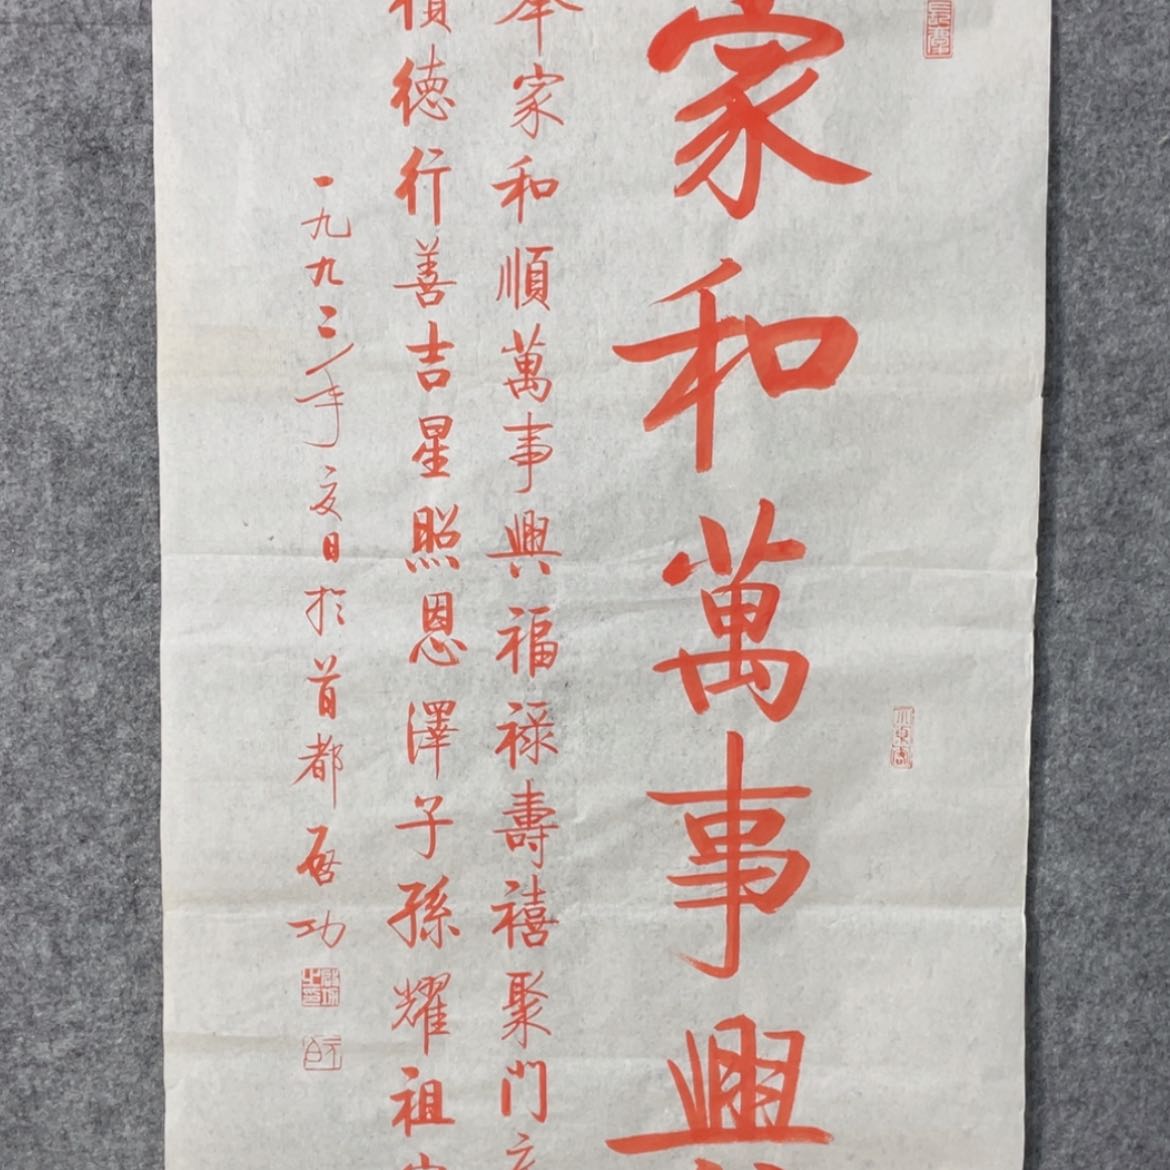 家和萬事興
家和順萬事興福祿壽禧聚門
德行善吉星照恩澤子孫耀祖
一九九二年夏日於首都啓功